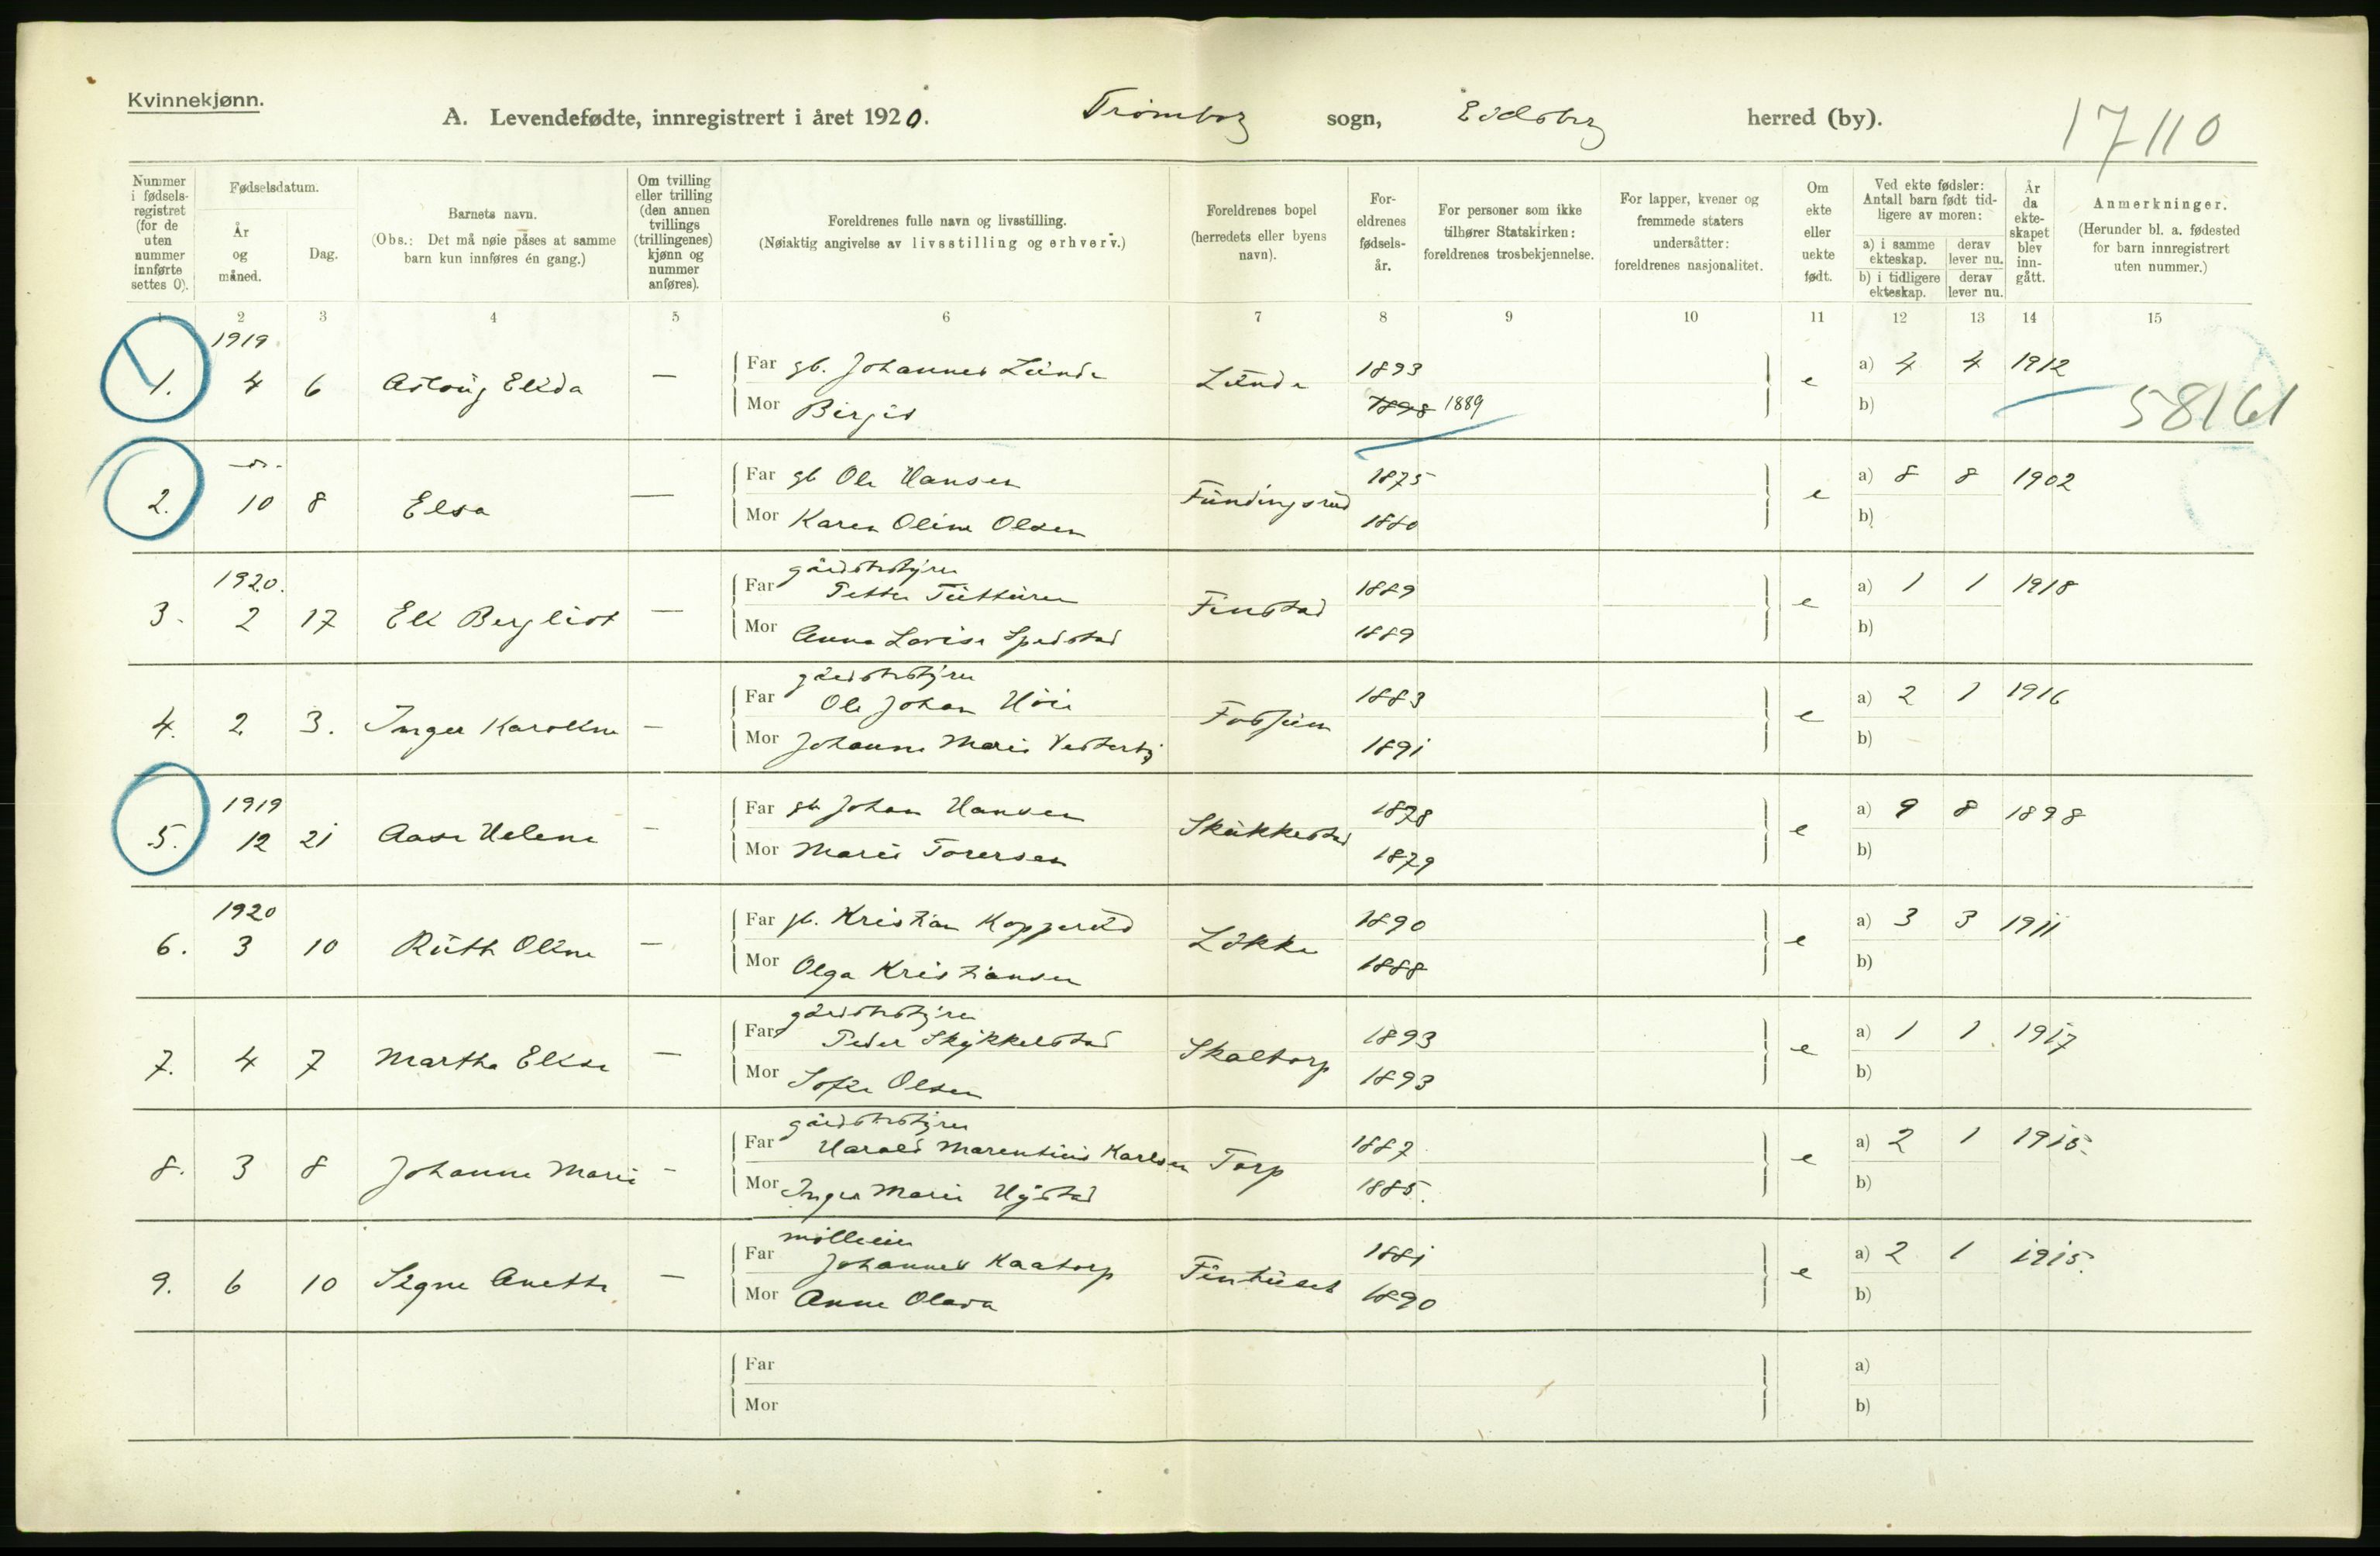 Kvinnekjønn.
A. Levendefødte, innregistrert i året 1920. Trømborg sogn, Eidsberg herred (by).
17110
Nummer i fødselsregistret (for de uten nummer innførte settes 0).
Fødselsdatum.
År og måned.
Dag.
Barnets navn.
(Obs.: Det må nøie påses at samme barn kun innføres én gang.)
Om tvilling eller trilling (den annen tvillings (trillingenes) kjønn og nummer anføres).
Foreldrenes fulle navn og livsstilling.
(Nøiaktig angivelse av livsstilling og erhverv.)
Foreldrenes bopel (herredets eller byens navn).
Foreldrenes fødselsår.
For personer som ikke tilhører Statskirken: foreldrenes trosbekjennelse.
For lapper, kvener og fremmede staters undersåtter: foreldrenes nasjonalitet.
Om ekte eller uekte født.
Ved ekte fødsler: Antall barn født tidligere av moren:
a) i samme ekteskap. derav lever nu.
b) i tidligere ekteskap. derav lever nu.
År da ekteskapet blev inngått.
Anmerkninger.
(Herunder bl. a. fødested for barn innregistrert uten nummer.)
1 2 3 4 5 6 7 8 9 10 11 12 13 14 15
1919
1. 4 6 Aslaug Elida — Far gb. Johannes Lunde Lunde 1893 e a) 4 4 1912
Mor Birgit 1898 1889 b) 58161
-"-
2. 10 8 Elsa — Far gb Ole Hansen Fundingsrud 1875 e a) 8 8 1902
Mor Karen Oline Olsen 1880 b)
1920. gårdbestyrer
3. 2 17 Eli Bergliot — Far Petter Tutturen Finstad 1889 e a) 1 1 1918
Mor Anna Lovise Spedstad 1889 b)
gårdbestyrer
4. 2 3. Inger Karoline — Far Ole Johan Høie Fossum 1883 e a) 2 1 1916
Mor Johanne Marie Vesterby 1891 b)
1919
5. 12 21 Aase Helene - Far gb Johan Hansen Skukkestad 1878 e a) 9 8 1898
Mor Marie Torersen 1879 b)
1920
6. 3 10 Ruth Oline — Far gb. Kristian Kopperud Løkke 1890 e a) 3 3 1911
Mor Olga Kristiansen 1888 b)
gårdbestyrer
7. 4 7 Martha Elise — Far Peder Skykkelstad Skaltorp 1893 e a) 1 1 1917
Mor Sofie Olsen 1893 b)
gårdbestyrer
8. 3 8 Johanne Marie - Far Harald Marentius Karlsen Torp 1887 e a) 2 1 1915.
Mor Inga Marie Hystad 1885. b)
mølleeier
9. 6 10 Signe Anette — Far Johannes Kaatorp 1881 e a) 2 1 1915.
Mor Anne Olava 1890 b)
Far a)
Mor b)